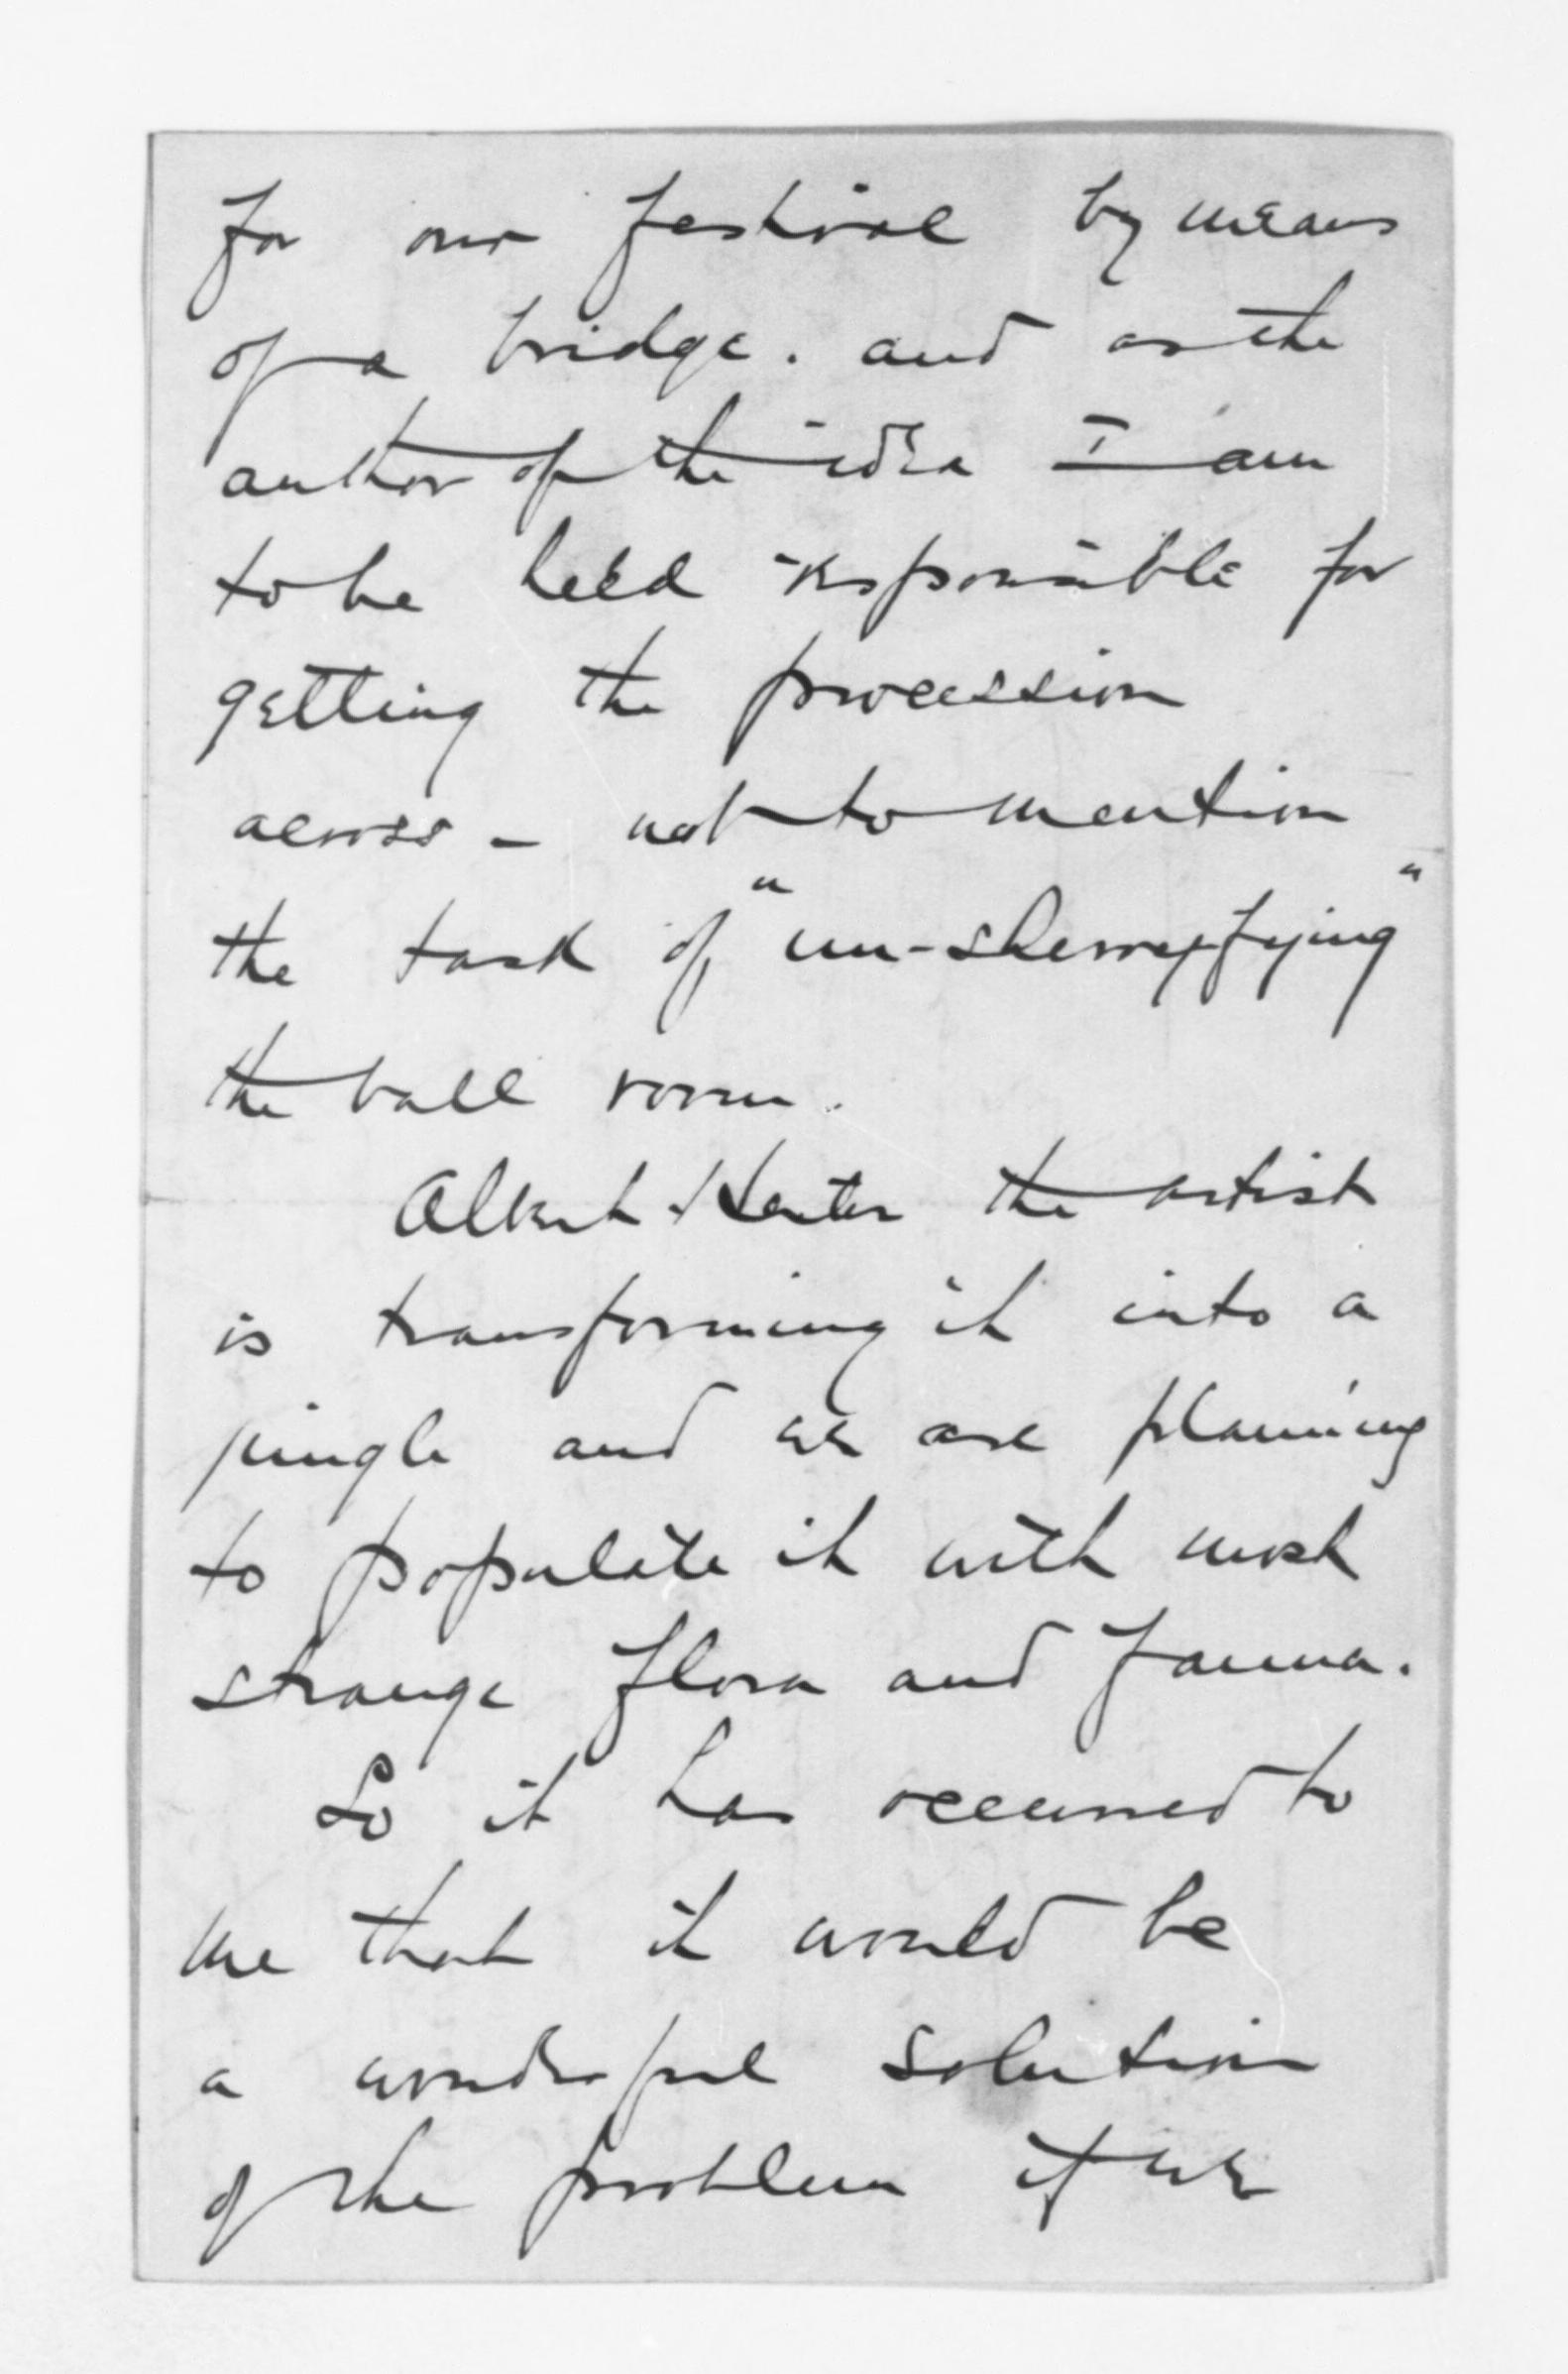 for our festival by means
of a bridge. and as the
author of the idea I am
to be held responsible for
getting the procession
across - not to mention
the task of "un-sherryfying"
the ball room.
Albert Herter the artist
is transforming it into a
jungle and we are planning
to populate it with most
strange flora and fauna.
So it has occurred to
me that it would be
a wonderful solution
of the problem if we